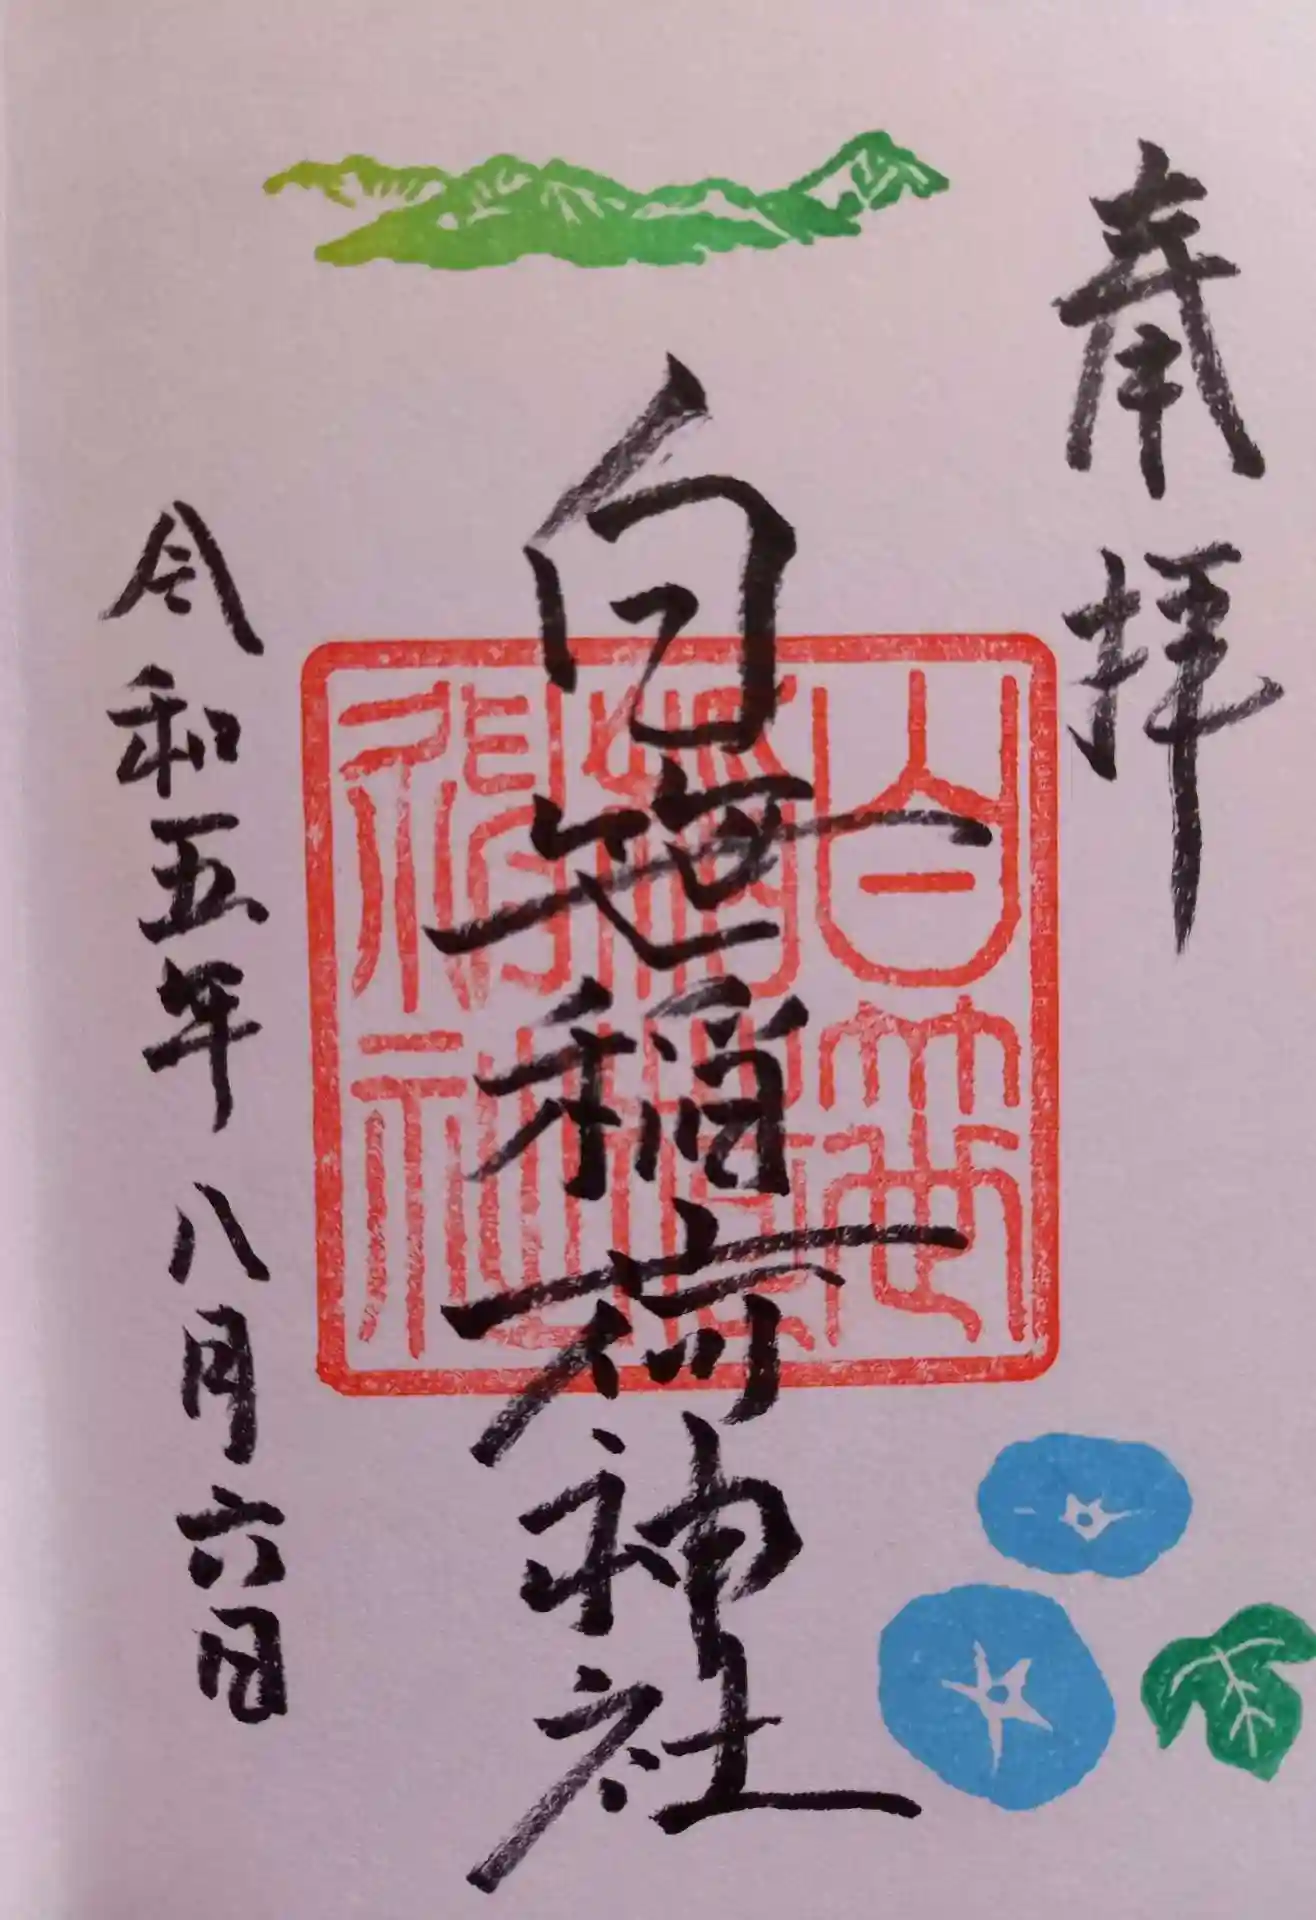 奉拝
白笹稲荷神社
白笹稲荷神社
令和五年八月六日